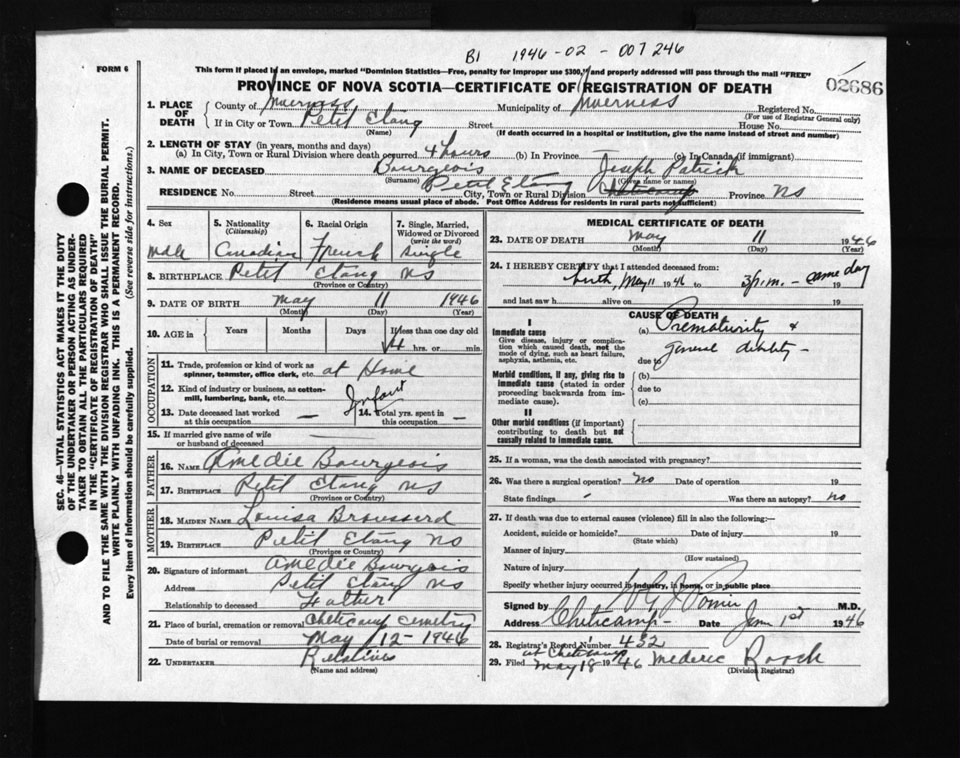 B1 1946-02-007246
FORM 6
This form if placed in an envelope, marked "Dominion Statistics—Free, penalty for improper use $300," and properly addressed will pass through the mail "FREE"
02686
PROVINCE OF NOVA SCOTIA—CERTIFICATE OF REGISTRATION OF DEATH
1. PLACE OF DEATH County of Inverness Municipality of Inverness Registered No.
(For use of Registrar General only)
If in City or Town Petit Etang Street House No.
(Name) (If death occurred in a hospital or institution, give the name instead of street and number)
2. LENGTH OF STAY (in years, months and days)
(a) In City, Town or Rural Division where death occurred 4 hours (b) In Province (c) In Canada (if immigrant)
3. NAME OF DECEASED Bourgeois Joseph Patrick
(Surname) (Given name or names)
RESIDENCE No. Street Petit Etang City, Town or Rural Division Cheticamp Province NS
(Residence means usual place of abode. Post Office Address for residents in rural parts not sufficient)
4. Sex 5. Nationality (Citizenship) 6. Racial Origin 7. Single, Married, Widowed or Divorced (write the word)
male Canadian French Single
8. BIRTHPLACE Petit Etang NS
(Province or Country)
9. DATE OF BIRTH May 11 1946
(Month) (Day) (Year)
10. AGE in Years Months Days If less than one day old
4 hrs. or min.
OCCUPATION
11. Trade, profession or kind of work as spinner, teamster, office clerk, etc. at Home
12. Kind of industry or business, as cotton-mill, lumbering, bank, etc. Infant
13. Date deceased last worked at this occupation — 14. Total yrs. spent in this occupation —
15. If married give name of wife or husband of deceased —
FATHER
16. NAME Amedie Bourgeois
17. BIRTHPLACE Petit Etang NS
(Province or Country)
MOTHER
18. MAIDEN NAME Louisa Broussard
19. BIRTHPLACE Petit Etang NS
(Province or Country)
20. Signature of informant Amedie Bourgeois
Address Petit Etang NS
Relationship to deceased Father
21. Place of burial, cremation or removal Cheticamp Cemetry
Date of burial or removal May 12-1946
22. UNDERTAKER Relatives
(Name and address)
MEDICAL CERTIFICATE OF DEATH
23. DATE OF DEATH May 11 1946
(Month) (Day) (Year)
24. I HEREBY CERTIFY that I attended deceased from:
birth, May 11 1946 to 3 p.m. - same day 19
and last saw h alive on 19
CAUSE OF DEATH
I
Immediate cause (a) Prematurity &
Give disease, injury or complication which caused death, not the mode of dying, such as heart failure, asphyxia, asthenia, etc.
general debility -
due to
Morbid conditions, if any, giving rise to immediate cause (stated in order proceeding backwards from immediate cause). (b)
due to
(c)
II
Other morbid conditions (if important) contributing to death but not causally related to immediate cause.
25. If a woman, was the death associated with pregnancy?
26. Was there a surgical operation? No Date of operation 19
State findings - Was there an autopsy? no
27. If death was due to external causes (violence) fill in also the following:—
Accident, suicide or homicide? Date of injury 19
(State which)
Manner of injury
(How sustained)
Nature of injury
Specify whether injury occurred in industry, in home, or in public place
Signed by M.D.
Address Cheticamp - Date June 1st 1946
28. Registrar's Record Number 432
at Cheticamp
29. Filed May 18 1946 Mederic Roach
(Division Registrar)
SEC. 46—VITAL STATISTICS ACT MAKES IT THE DUTY
OF THE UNDERTAKER OR PERSON ACTING AS UNDER-
TAKER TO OBTAIN ALL THE PARTICULARS REQUIRED
IN THE "CERTIFICATE OF REGISTRATION OF DEATH"
AND TO FILE THE SAME WITH THE DIVISION REGISTRAR WHO SHALL ISSUE THE BURIAL PERMIT.
WRITE PLAINLY WITH UNFADING INK. THIS IS A PERMANENT RECORD.
Every item of information should be carefully supplied. (See reverse side for instructions.)